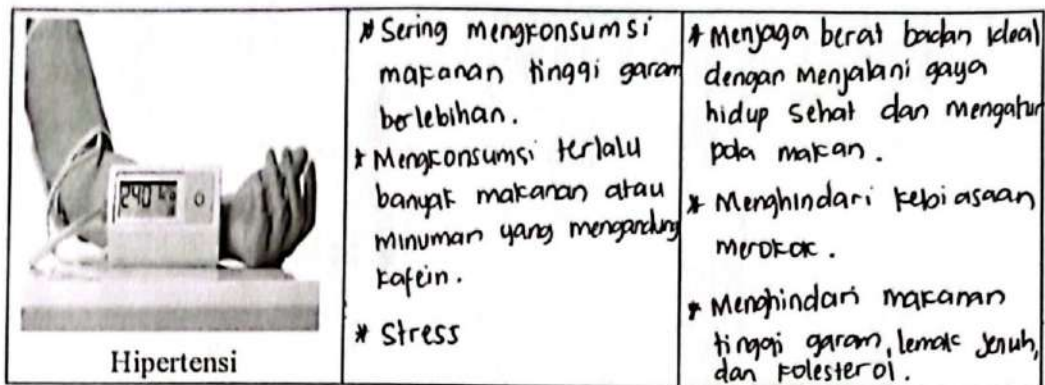 240
Hipertensi
* Sering mengkonsumsi
makanan tinggi garam
berlebihan.
* Mengkonsumsi terlalu
banyak makanan atau
minuman yang mengandung
kafein.
* Stress
* Menjaga berat badan ideal
dengan Menjalani gaya
hidup sehat dan mengatur
pola makan.
* Menghindari kebiasaan
merokok.
* Menghindari makanan
tinggi garam, lemak jenuh,
dan kolesterol.